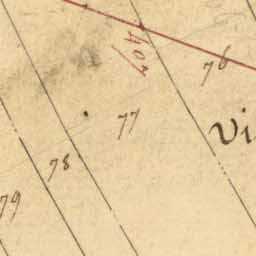 407
76
77
Vi
78
79